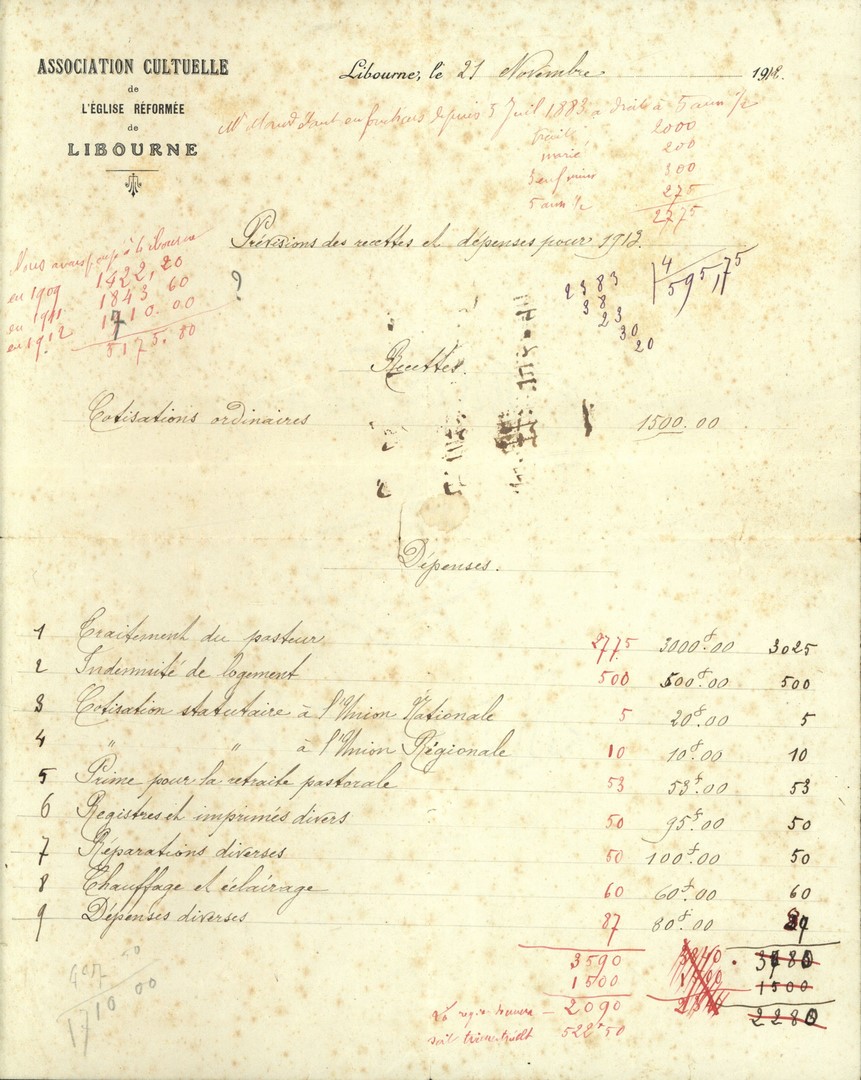 ASSOCIATION CULTUELLE
de
L'ÉGLISE RÉFORMÉE
de
LIBOURNE
Libourne, le 21 Novembre 1912.
en fonctions depuis 5 Juil 1883 a droit à 5 ann 1/2
traité 2000
marié 200
3 enf 300
5 ann 1/2 275
2775
Prévisions des recettes et dépenses pour 1913.
Nous avons
en 1909 1622,20
en 1911 1843 60
en 1912 1710.00
5175.80
?
2383
38
23
30
20
4
595,75
Recettes.
Cotisations ordinaires 1500.00
Dépenses.
1 Traitement du pasteur 2775 3000f.00 3025
2 Indemnité de logement 500 500f.00 500
3 Cotisation statutaire à l'Union Nationale 5 20f.00 5
4 " " à l'Union Régionale 10 10f.00 10
5 Prime pour la retraite pastorale 53 53f.00 53
6 Registres et imprimés divers 50 95f.00 50
7 Réparations diverses 50 100f.00 50
8 Chauffage et éclairage 60 60f.00 60
9 Dépenses diverses 87 80f.00
3590
1500 1500
2090 2280
soit 522f50
1710 00